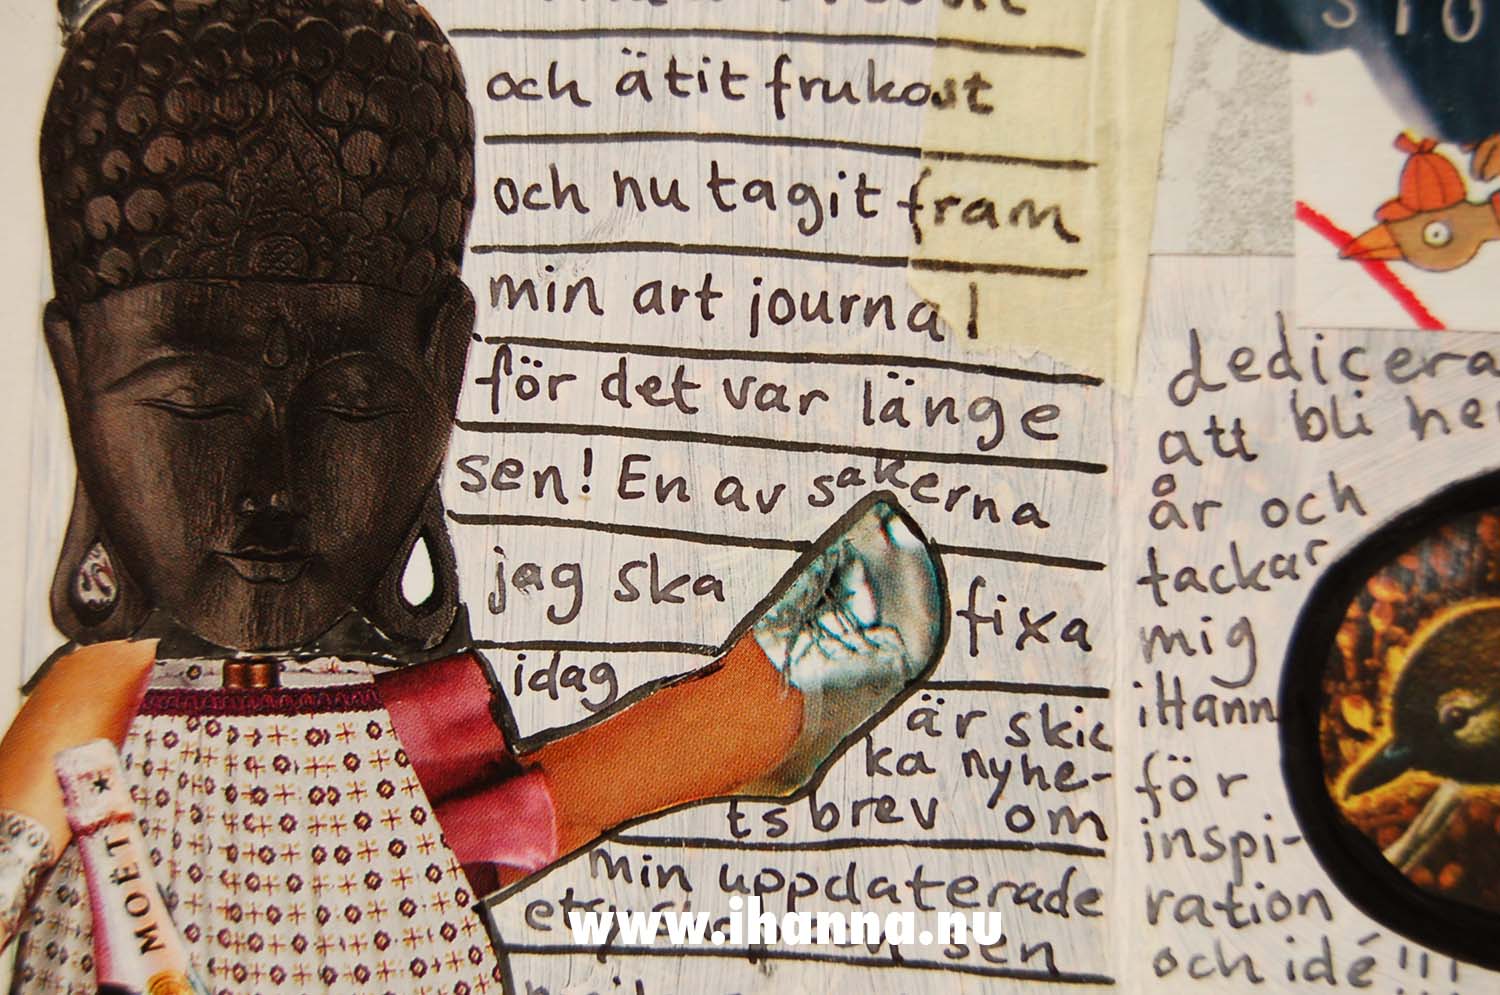 och ätit frukost
och nu tagit fram
min art journal
för det var länge
sen! En av sakerna
jag ska fixa
idag
är skic
ka nyhe-
tsbrev om
min uppdaterade
etsy
sen
www.ihanna.nu
MOËT
STO
dedicera
att bli
år och
tackar
mig
iHann
för
inspi-
ration
och idé!!!